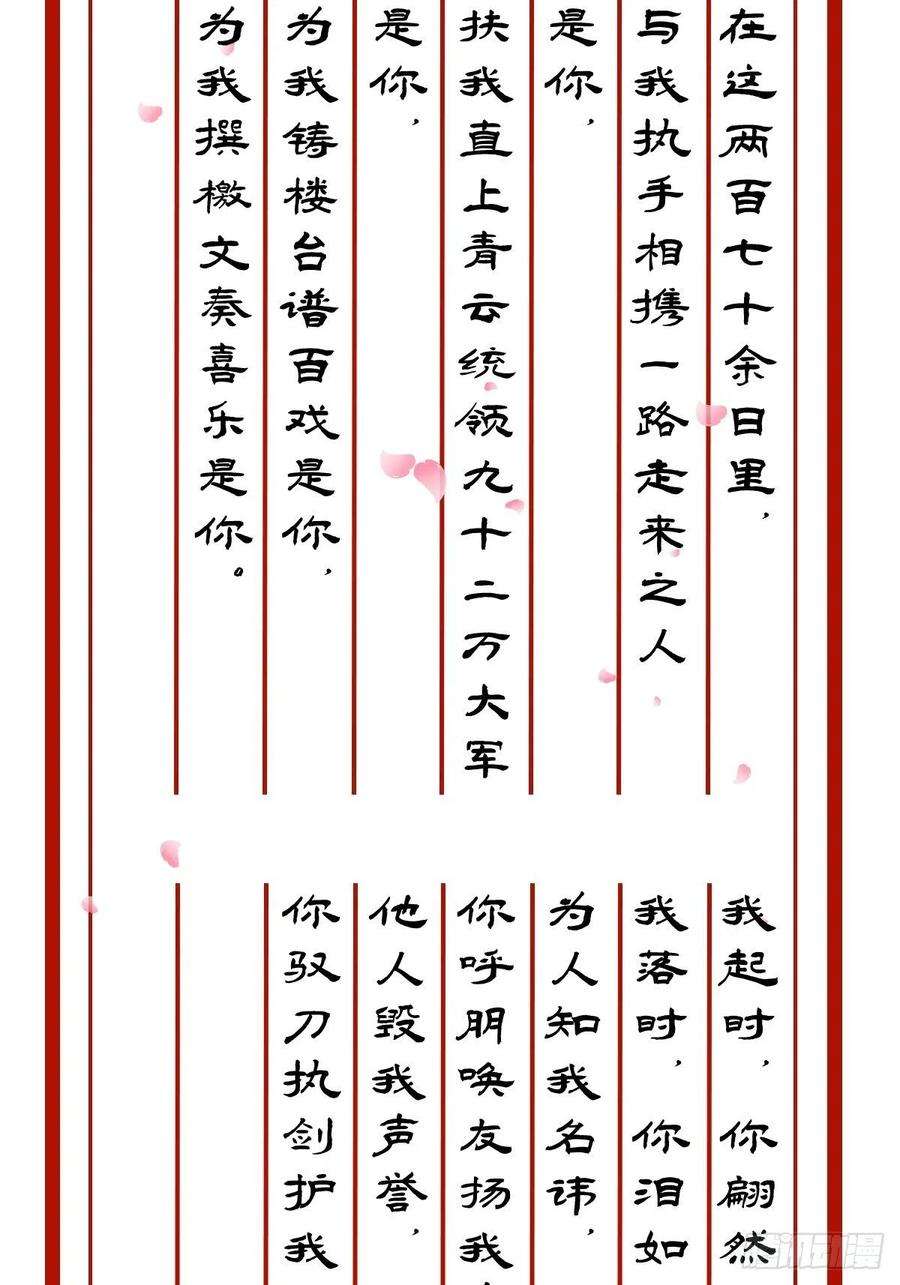 在这两百七十余日里，
与我执手相携一路走来之人
是你，
扶我直上青云统领九十二万大军
是你，
为我铸楼台谱百戏是你，
为我撰檄文奏喜乐是你。
我起时，你翩然
我落时，你泪如
为人知我名讳，
你呼朋唤友扬我
他人毁我声誉，
你驭刀执剑护我